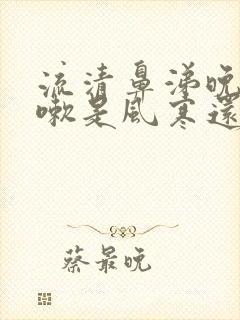 流清鼻涕晚
嗽是風寒還
蔡最晚